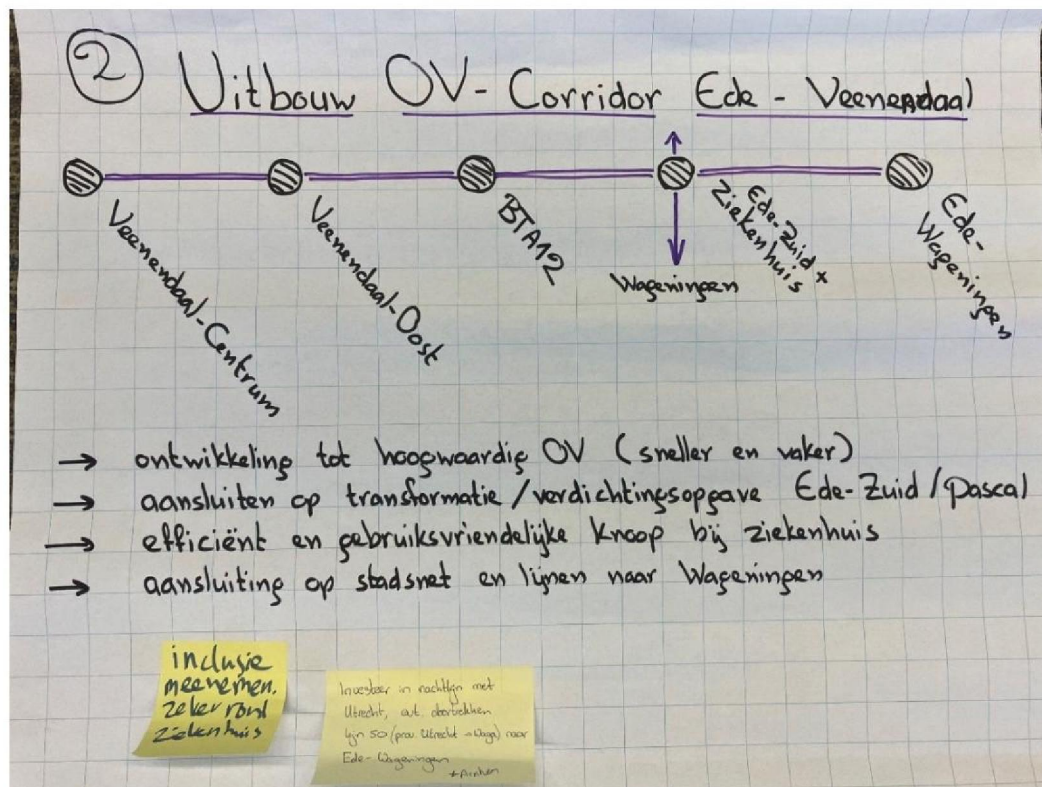 2 Uitbouw OV-Corridor Ede - Veenendaal
Veenendaal-Centrum
Veenendaal-Oost
BTA12
Wageningen
Ede-Zuid +
Ziekenhuis
Ede-
Wageningen
→ ontwikkeling tot hoogwaardig OV (sneller en vaker)
→ aansluiten op transformatie/verdichtingsopgave Ede-Zuid/Pascal
→ efficiënt en gebruiksvriendelijke knoop bij ziekenhuis
→ aansluiting op stadsnet en lijnen naar Wageningen
inclusie
meenemen.
zeker rond
ziekenhuis
Investeer in nachtlijn met
Utrecht, evt. doortrekken
lijn 50 (prov. Utrecht → Wag) naar
Ede-Wageningen
+Arnhem